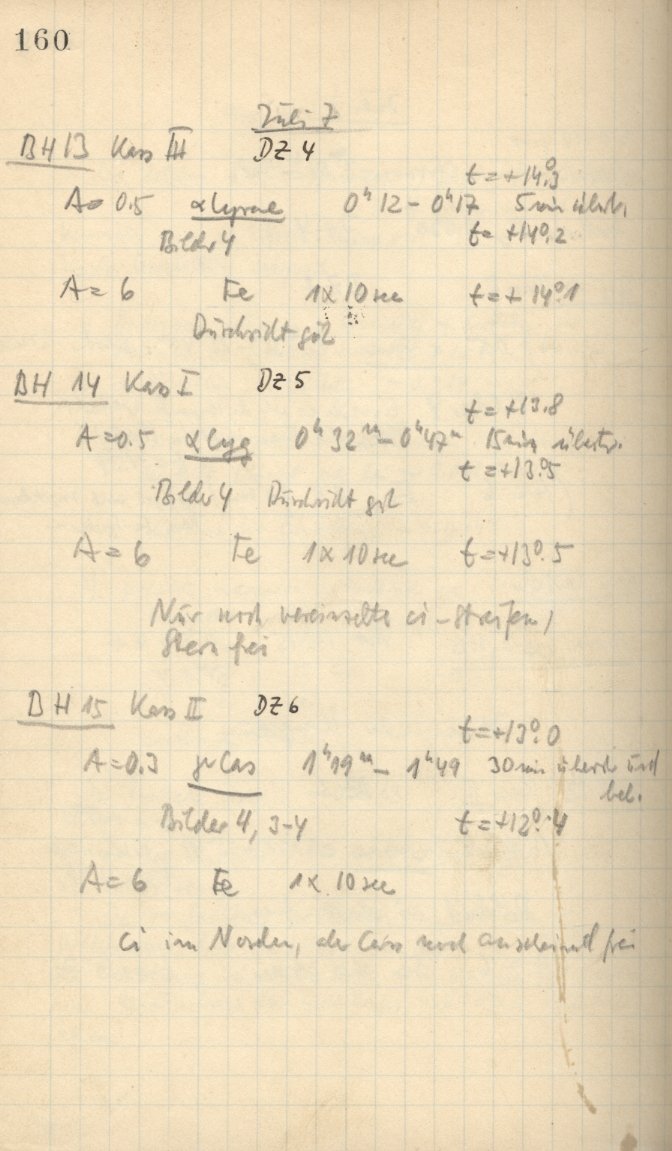 160
Juli 7
BH 13 Kass III DZ 4
t = +14°.3
A = 0.5 α Lyrae 0ʰ 12 – 0ʰ 17 5 min überb.
Bilder 4 t = +14°.2
A = 6 Fe 1 x 10 sec t = + 14°.1
Durchsicht gut
BH 14 Kass I DZ 5
t = +13.8
A = 0.5 α Cyg 0ʰ 32ᵐ – 0ʰ 47ᵐ 15 min
t = +13°.5
Bilder 4 Durchsicht gut
A = 6 Fe 1 x 10 sec t = +13°.5
Nur noch vereinzelte ci-Streifen,
Stern frei
BH 15 Kass II DZ 6
t = +13°.0
A = 0.3 γ Cas 1ʰ 19ᵐ – 1ʰ 49 30 min und
bel.
Bilder 4, 3-4 t = +12°.4
A = 6 Fe 1 x 10 sec
ci im Norden, aber Cass noch anscheinend frei